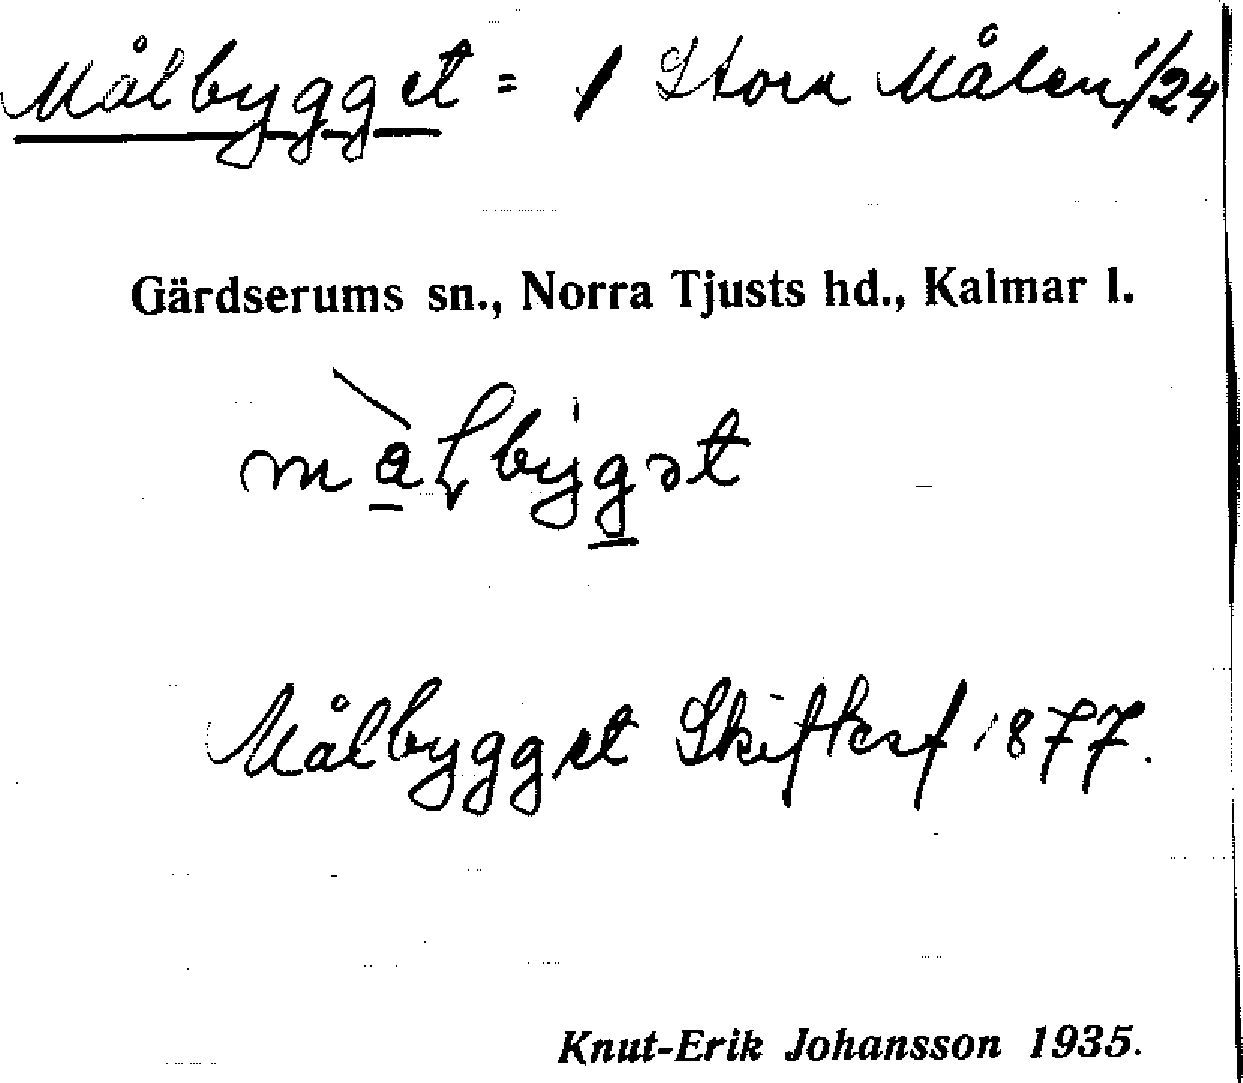 Målbygget = 1 Stora Målen 1/24
Gärdserums sn., Norra Tjusts hd., Kalmar l.
Målbygget Skifteskf 1877.
Knut-Erik Johansson 1935.